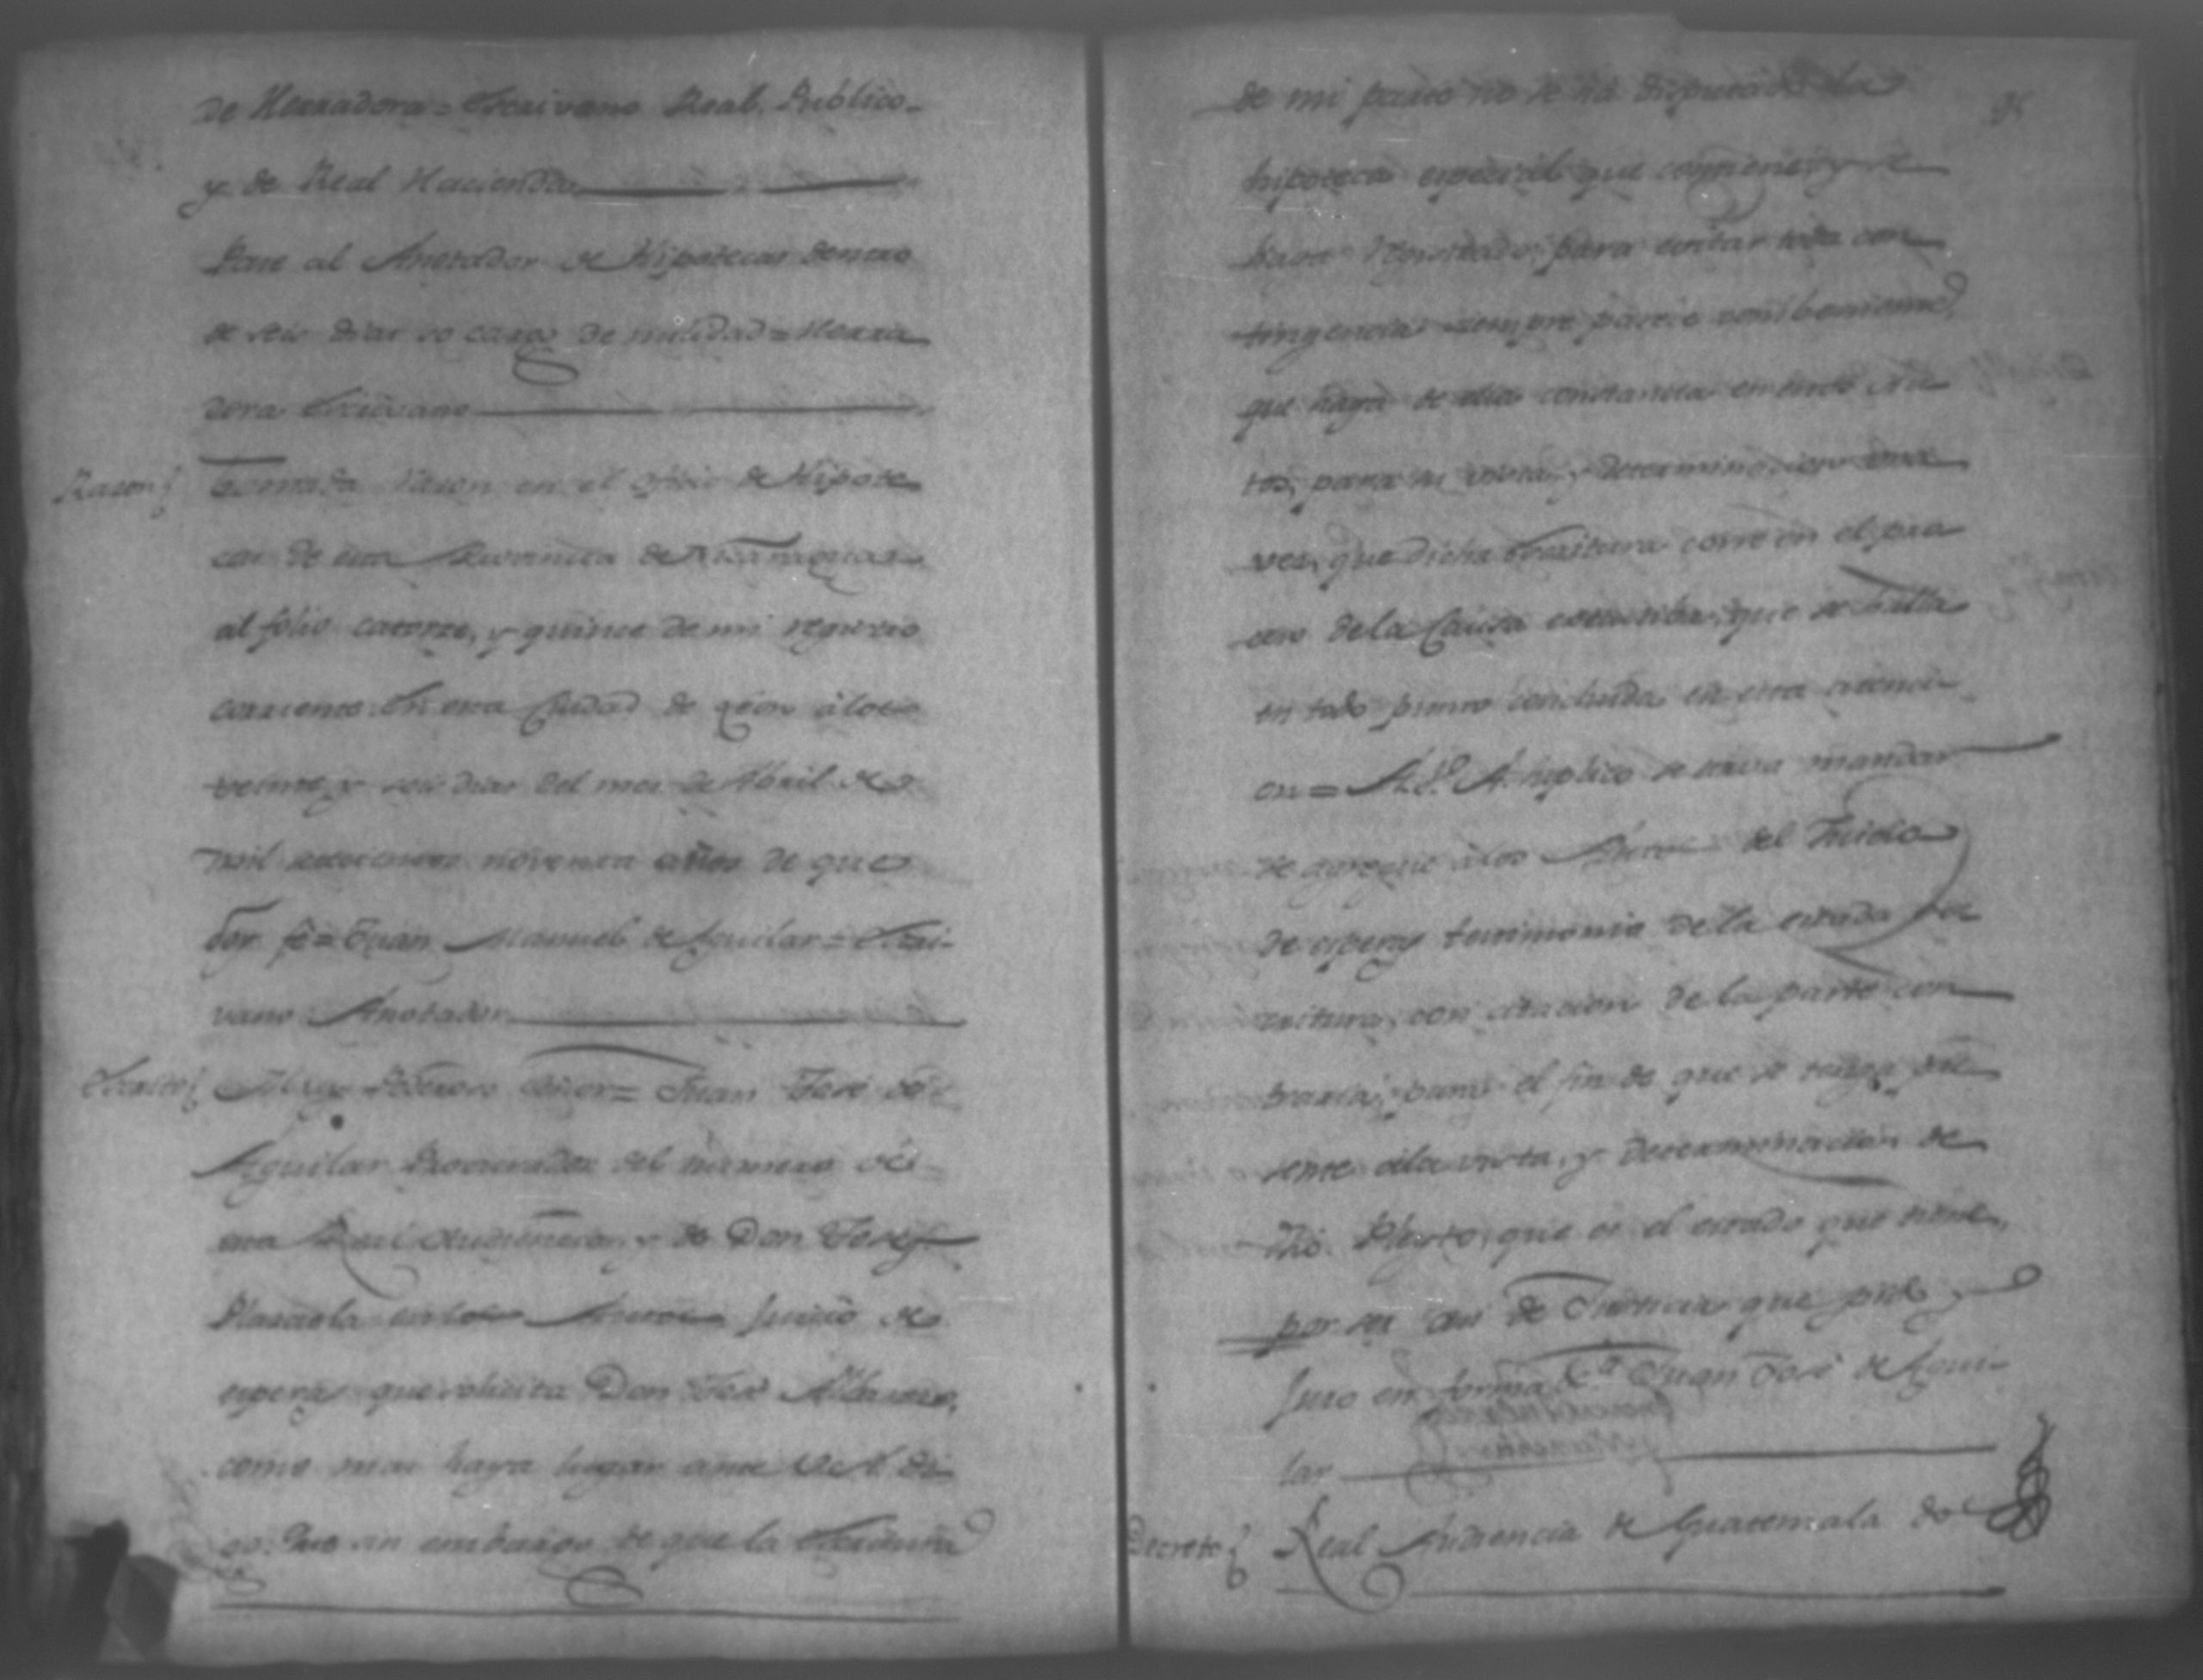 de Herradora = Escrivano Real, Público
y de Real Hacienda
Pase al Anotador de Hipotecas dentro
de seis dias so cargo de nulidad = Herra
dora Escrivano
Razon
Tomada razon en el oficio de Hipote
cas de esta Provincia de Nicaragua
al folio catorze, y quince de mi registro
corriente. En esta Ciudad de Leon á los
veinte y seis dias del mes de Abril de
mil setecientos noventa años de que
doy fé = Juan Manuel de Aguilar = Escri-
vano Anotador
Escrito
Muy Poderoso Señor = Juan José de
Aguilar Procurador del numero de
esta Real Audiencia, y de Don José
en los Autos Juicio de
esperas que solicita Don José
como mas haya lugar ante V.A. di
go: Que sin embargo de que la Escritura
de mi parte no se ha disputado la
hipoteca especial que contiene, y se
haya para evitar toda con
tingencia siempre parece
que haya de ella constancia en estos Au
tos, para su vista, y determinacion una
vez, que dicha Escritura corre en el pro
ceso de la Causa executiva, que se halla
en todo punto concluida en esta atenci
on = A V. A. suplico se sirva mandar
se agregue á los Autos del Juicio
de esperas testimonio de la citada Es
critura, con citacion de la parte con
traria, para el fin de que se tenga pre
sente á la vista, y determinacion de
dho. Pleyto, que es el estado que tiene,
por ser asi de Justicia que pido, y
Juro en forma &a. Juan José de Agui-
lar
Decreto
Real Audiencia de Guatemala